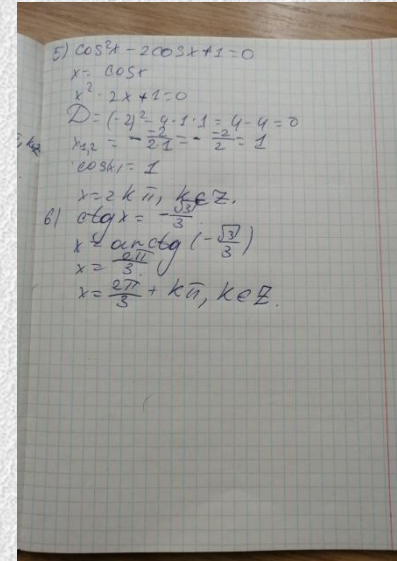 5) cos²x - 2cosx + 1 = 0
x = cosx
x² - 2x + 1 = 0
D = (-2)² - 4·1·1 = 4 - 4 = 0
x₁,₂ = - -2/2·1 = - -2/2 = 1
cosx₁ = 1
x = 2kπ, k∈Z.
6) ctgx = -√3/3.
x = arcctg (-√3/3)
x = 2π/3.
x = 2π/3 + kπ, k∈Z.